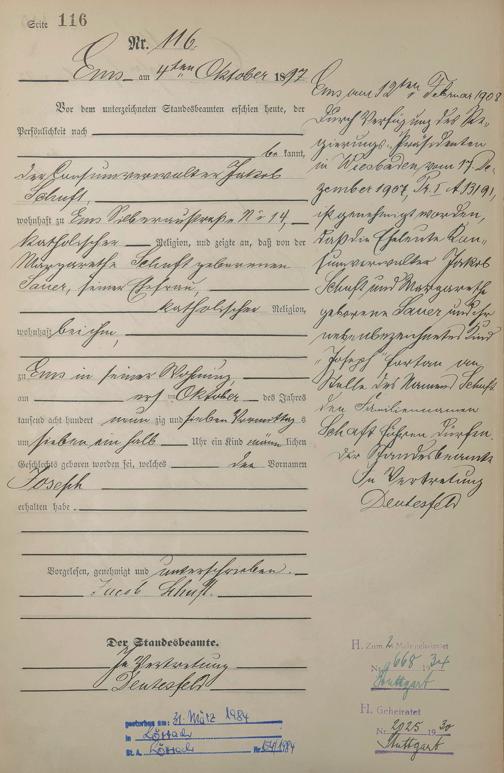 Seite 116
Nr. 116.
Ems am 4ten Oktober 1897
Vor dem unterzeichneten Standesbeamten erschien heute, der
Persönlichkeit nach
be kannt,
der Consumverwalter Jakob
Schuft,
wohnhaft zu Ems Silberaustraße No 14,
katholischer Religion, und zeigte an, daß von der
Margarethe Schuft geborenen
Sauer, seiner Ehefrau,
katholischer Religion,
wohnhaft bei ihm,
zu Ems in seiner Wohnung,
am ersten Oktober des Jahres
tausend acht hundert neun zig und sieben Vormittags
um sieben ein halb Uhr ein Kind männ lichen
Geschlechts geboren worden sei, welches den Vornamen
Joseph
erhalten habe.
Vorgelesen, genehmigt und unterschrieben.
Jacob Schuft.
Der Standesbeamte.
In Vertretung
Deutesfeld
Ems am 12ten Februar 1908
Durch Verfügung des Re-
gierungs-Präsidenten
in Wiesbaden vom 17. De-
zember 1907, Pr. I. A 13191,
ist genehmigt worden,
daß die Eheleute Con-
sumverwalter Jakob
Schuft und Margareth
geborene Sauer und ihr
nebenbezeichnetes Kind
"Joseph" fortan an
Stelle des Namens Schuft
den Familiennamen
Schaft führen dürfen.
Der Standesbeamte
In Vertretung
Deutesfeld
H. Zum 2. Mal geheiratet
Nr. 668 1934
Stuttgart
H. Geheiratet
Nr. 2025 1930
Stuttgart
gestorben am: 31. März 1984
in Lörrach
St. A. Lörrach Nr. 154/1984